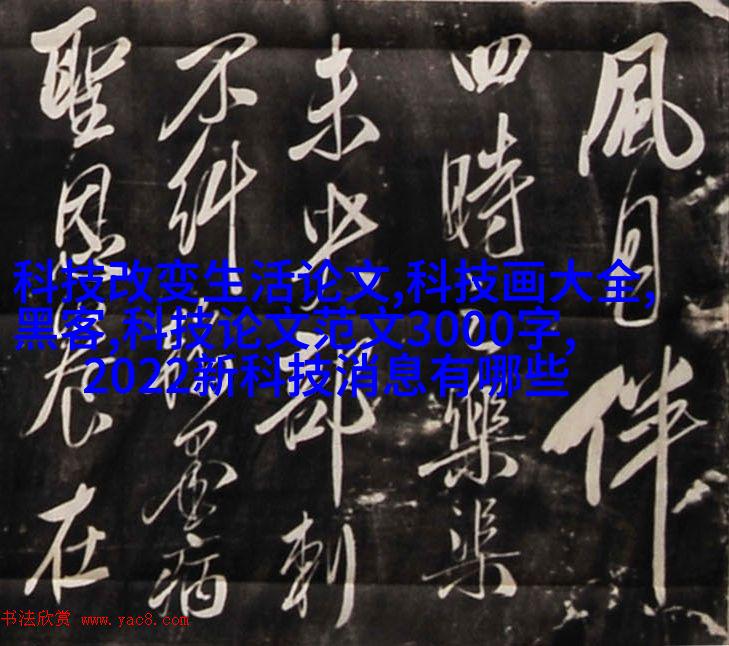 風伴
四時樂渠
未部刺
不糾病
聖恩在
科技改变生活论文,科技画大全,
黑客,科技论文范文3000字,
2022新科技消息有哪些
书法欣赏 www.yac8.com